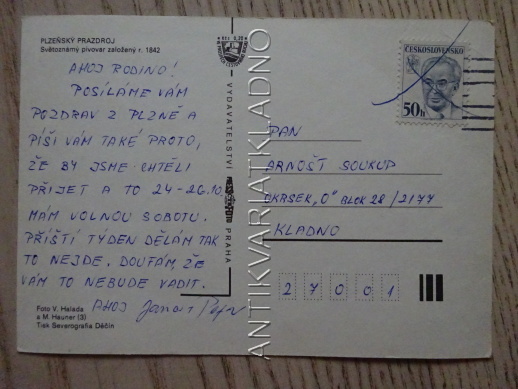 PLZEŇSKÝ PRAZDROJ
Světoznámý pivovar založený r. 1842
AHOJ RODINO!
POSÍLÁME VÁM
POZDRAV Z PLZNĚ A
PÍŠI VÁM TAKÉ PROTO,
ŽE BY JSME CHTĚLI
PŘIJET A TO 24-26.10.
MÁM VOLNOU SOBOTU.
PŘÍŠTÍ TÝDEN DĚLÁM TAK
TO NEJDE. DOUFÁM, ŽE
VÁM TO NEBUDE VADIT.
AHOJ
Foto V. Halada
a M. Hauner (3)
Tisk Severografia Děčín
VYDAVATELSTVÍ
PRAHA
ANTIKVARIATKLADNO
ČESKOSLOVENSKO
50h
PAN
ARNOŠT SOUKUP
OKRSEK „O" BLOK 28/2177
KLADNO
27001